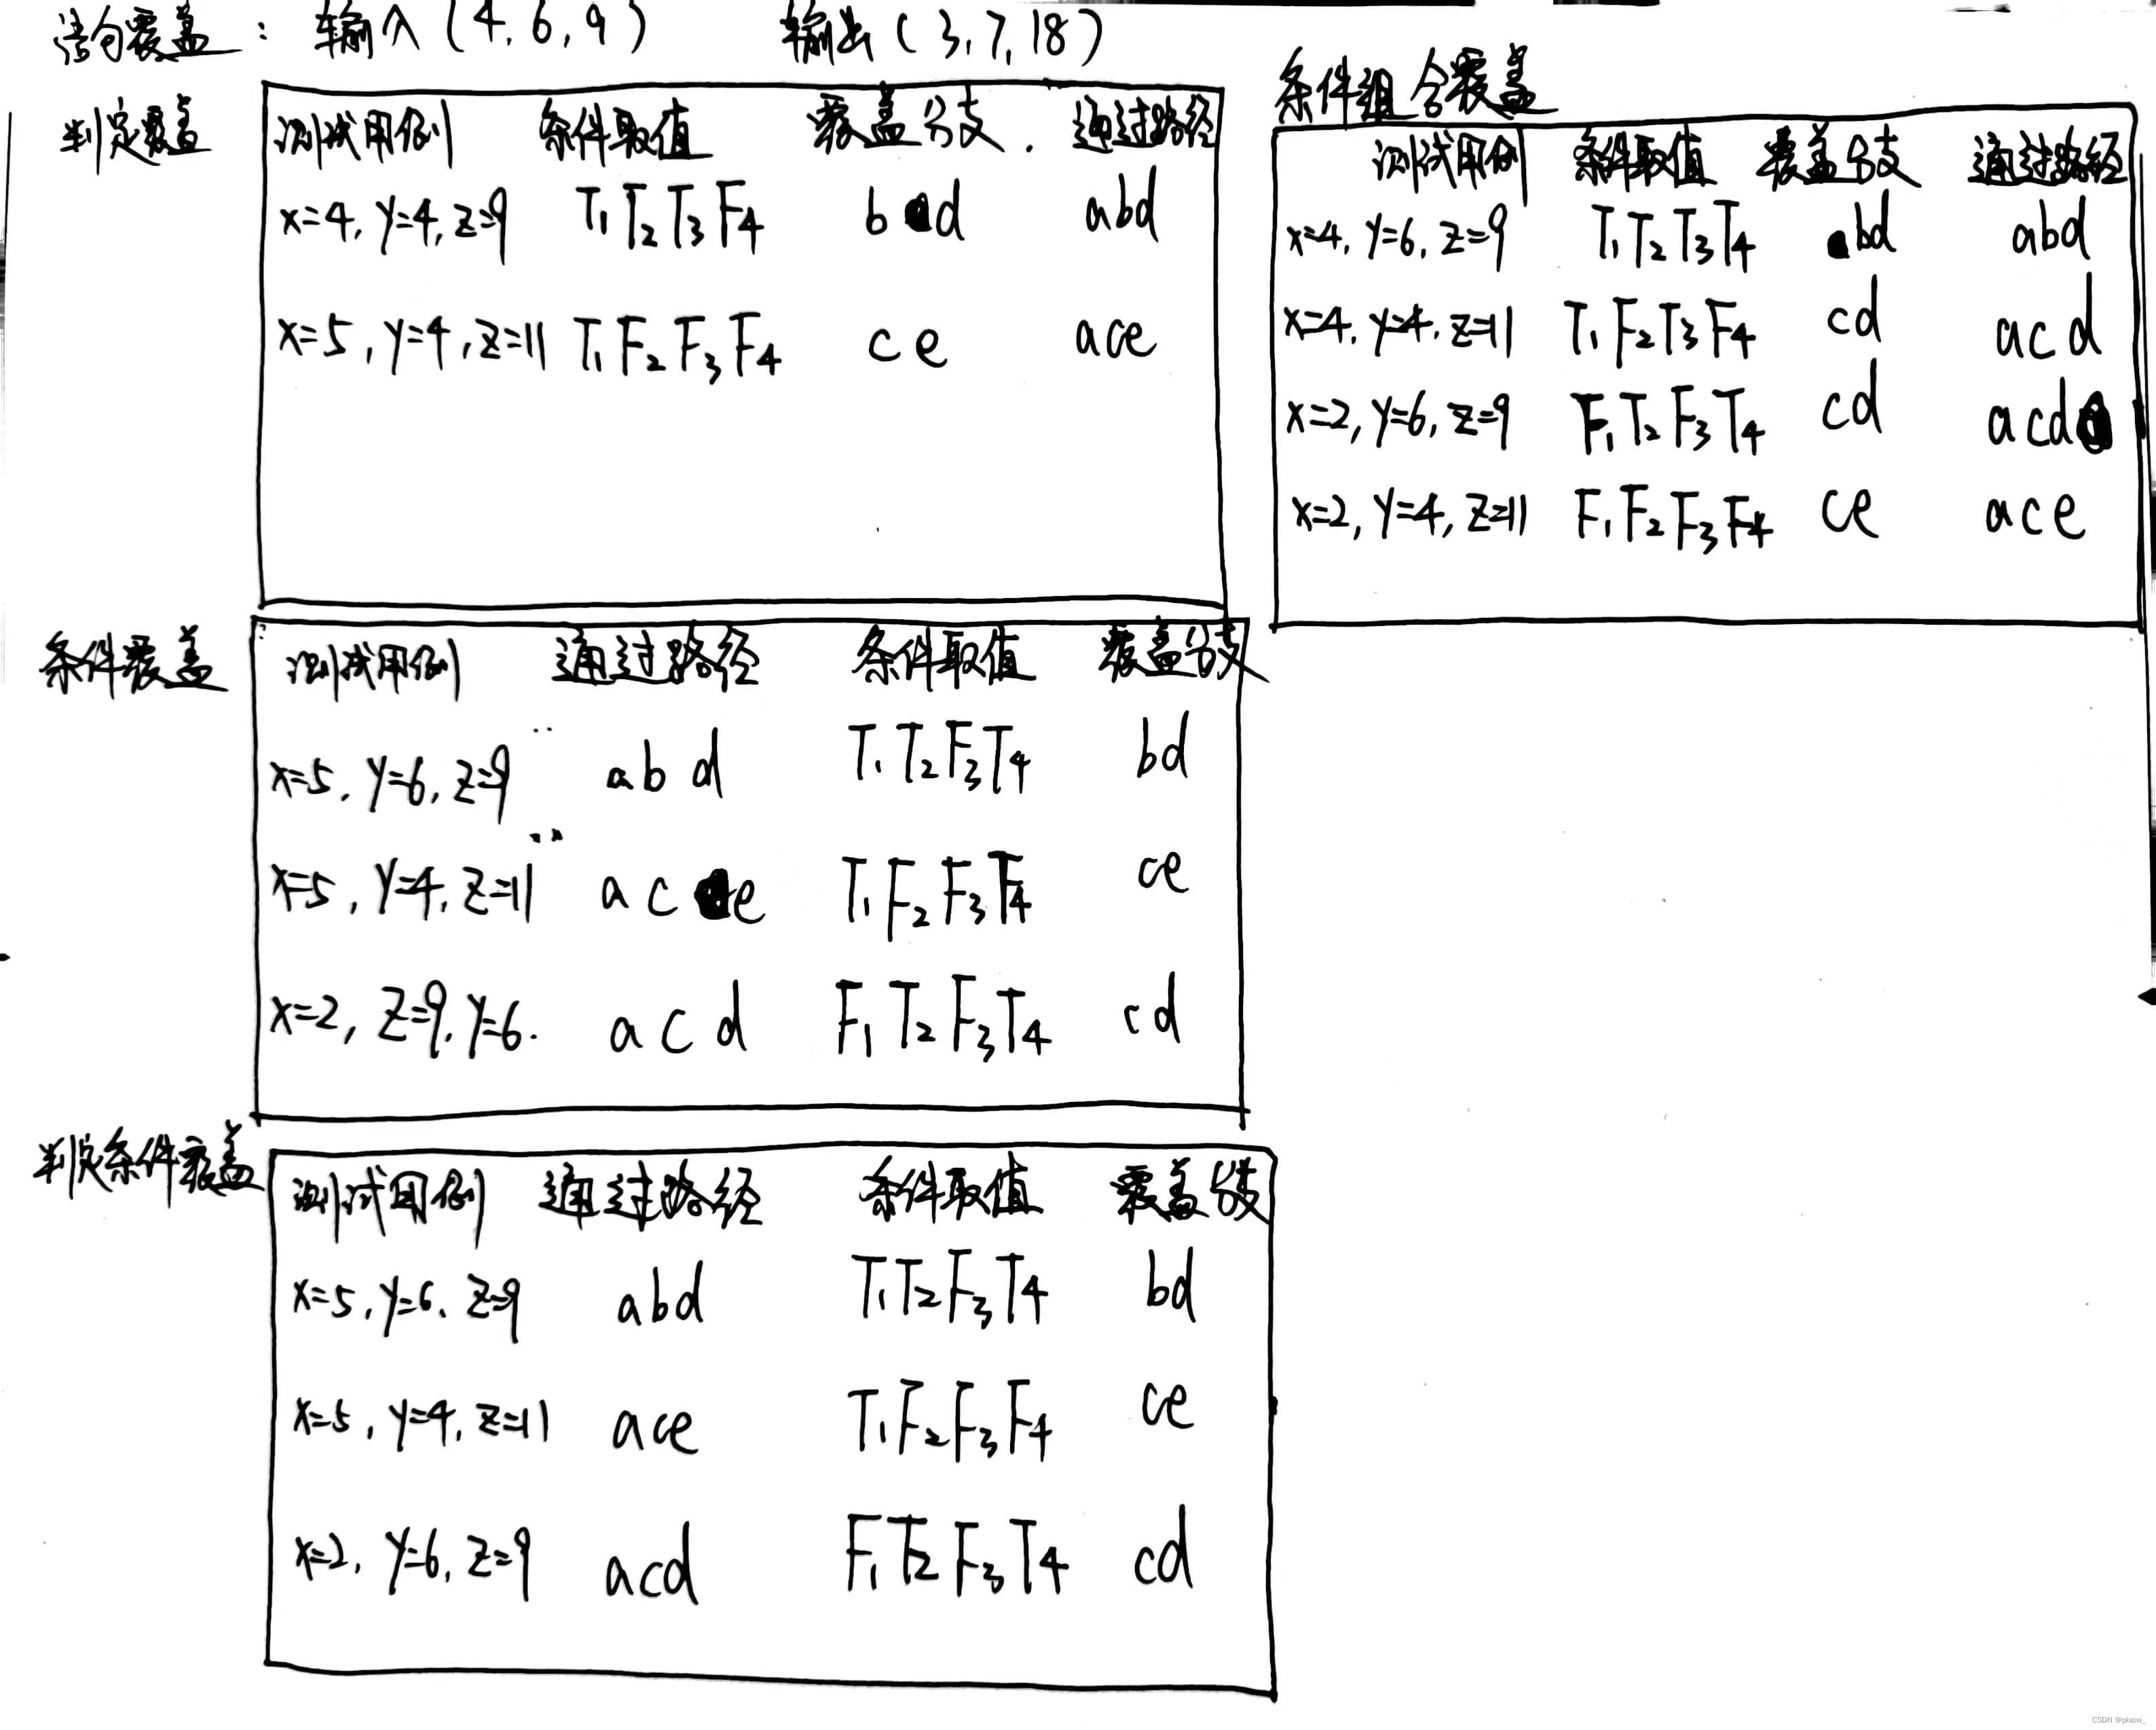 语句覆盖： 输入(4,6,9) 输出(3,7,18)
判定覆盖
测试用例 条件取值 覆盖分支 通过路径
x=4, y=4, z=9 T1T2T3F4 bd abd
x=5, y=4, z=11 T1F2F3F4 ce ace
条件组合覆盖
测试用例 条件取值 覆盖分支 通过路径
x=4, y=6, z=9 T1T2T3T4 bd abd
x=4, y=4, z=11 T1F2T3F4 cd acd
x=2, y=6, z=9 F1T2F3T4 cd acd
x=2, y=4, z=11 F1F2F3F4 ce ace
条件覆盖
测试用例 通过路径 条件取值 覆盖分支
x=5, y=6, z=9 abd T1T2F3T4 bd
x=5, y=4, z=11 ace T1F2F3F4 ce
x=2, z=9, y=6. acd F1T2F3T4 cd
判定条件覆盖
测试用例 通过路径 条件取值 覆盖分支
x=5, y=6, z=9 abd T1T2F3T4 bd
x=5, y=4, z=11 ace T1F2F3F4 ce
x=2, y=6, z=9 acd F1T2F3T4 cd